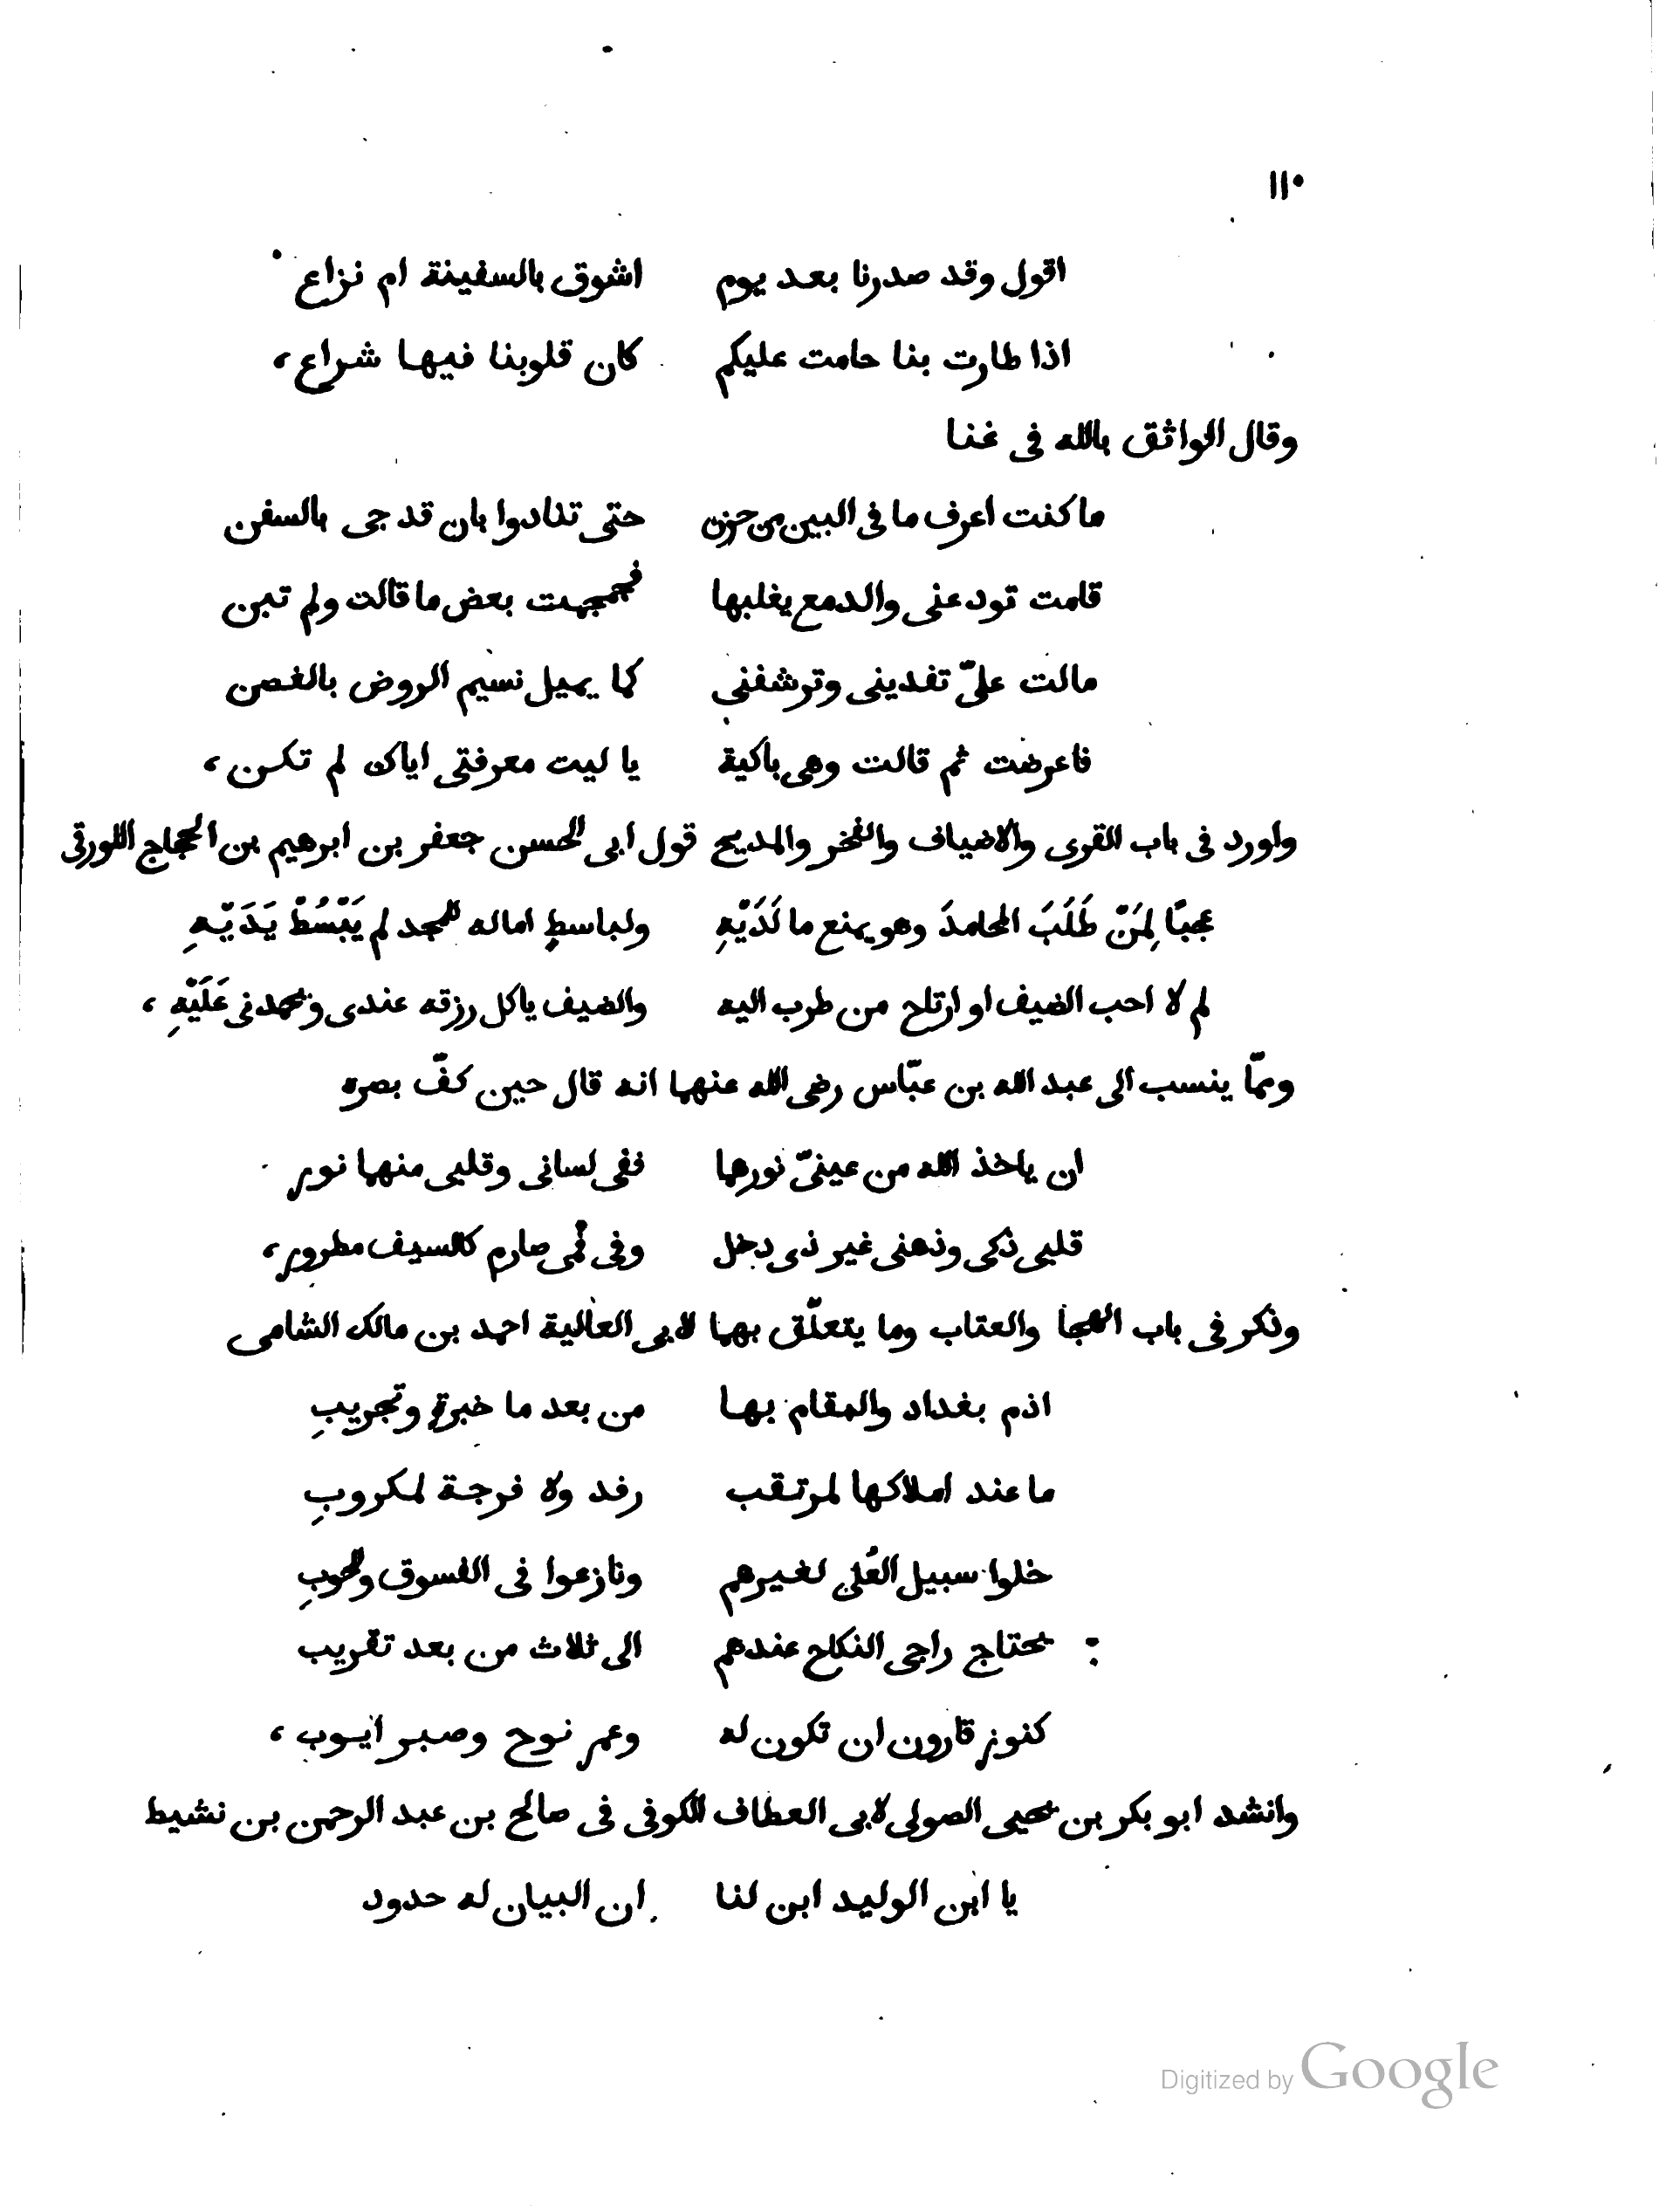 ١١٠
اقول وقد صدرنا بعد يوم اشوق بالسفينة ام نزاع
اذا طارت بنا حامت عليكم كان قلوبنا فيها شراع،
وقال الواثق بالله فى غنا
ما كنت اعرف ما فى البين من حزن حتى تنادوا بان قد جى بالسفن
قامت تودعنى والدمع يغلبها فجمجمت بعض ما قالت ولم تبن
مالت علىّ تفدينى وترشفنى كما يميل نسيم الروض بالغصن
فاعرضت ثم قالت وهى باكية يا ليت معرفتى اياك لم تكن،
واورد فى باب القرى والاضياف والفخر والمديح قول ابى الحسن جعفر بن ابرهيم بن الحجاج اللورقى
عجبًا لِمَنْ طَلَبَ المحامدَ وهو يمنع ما لَدَيْهِ ولباسطٍ اماله للمجد لم يَبْسُطْ يَدَيْهِ
لم لا احب الضيف او ارتاح من طرب اليه والضيف ياكل رزقه عندى ويحمدنى عَلَيْهِ،
وممّا ينسب الى عبد الله بن عبّاس رضى الله عنهما انه قال حين كفّ بصره
ان ياخذ الله من عينىّ نورهما ففى لسانى وقلبى منهما نور
قلبى ذكى وذهنى غير ذى دخل وفى فمى صارم كالسيف مطرور،
وذكر فى باب الهجا والعتاب وما يتعلّق بهما لابى العالية احمد بن مالك الشامى
اذم بغداد والمقام بها من بعد ما خبرة وتجريبِ
ما عند املاكها لمرتقب رفد ولا فرجة لمكروبِ
خلوا سبيل العُلى لغيرهم ونازعوا فى الفسوق والحوبِ
يحتاج راجى النكاح عندهم الى ثلاث من بعد تقريب
كنوز قارون ان تكون له وعمر نوح وصبر ايوب،
وانشد ابو بكر بن يحيى الصولى لابى العطاف الكوفى فى صالح بن عبد الرحمن بن نشيط
يا ابن الوليد ابن لنا ان البيان له حدود
Digitized by Google